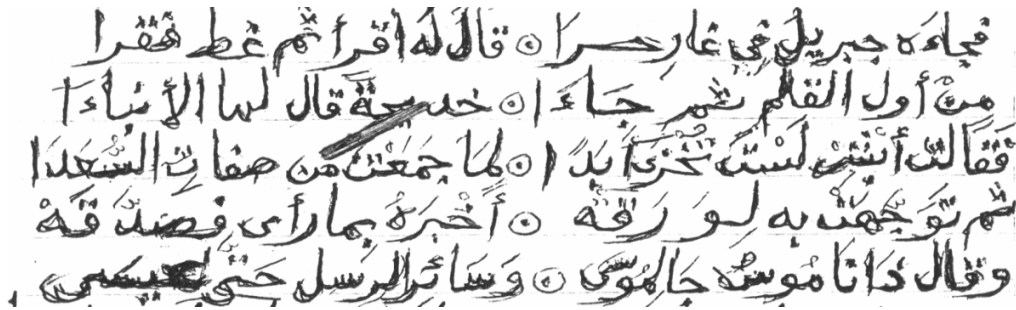 فجاءه جبريل في غار حرا ۞ قال له اقرا ثم غط فقرا
من أول القلم ثم جاءا ۞ خديجة قال لها الأنباءا
فقالت أنت لست تخزى أبدا ۞ لما جمعت من صفات السعدا
ثم توجهت به لورقه ۞ أخبره بما رأى فصدقه
وقال ذا ناموس جا لموسى ۞ وسائر الرسل حتى عيسى